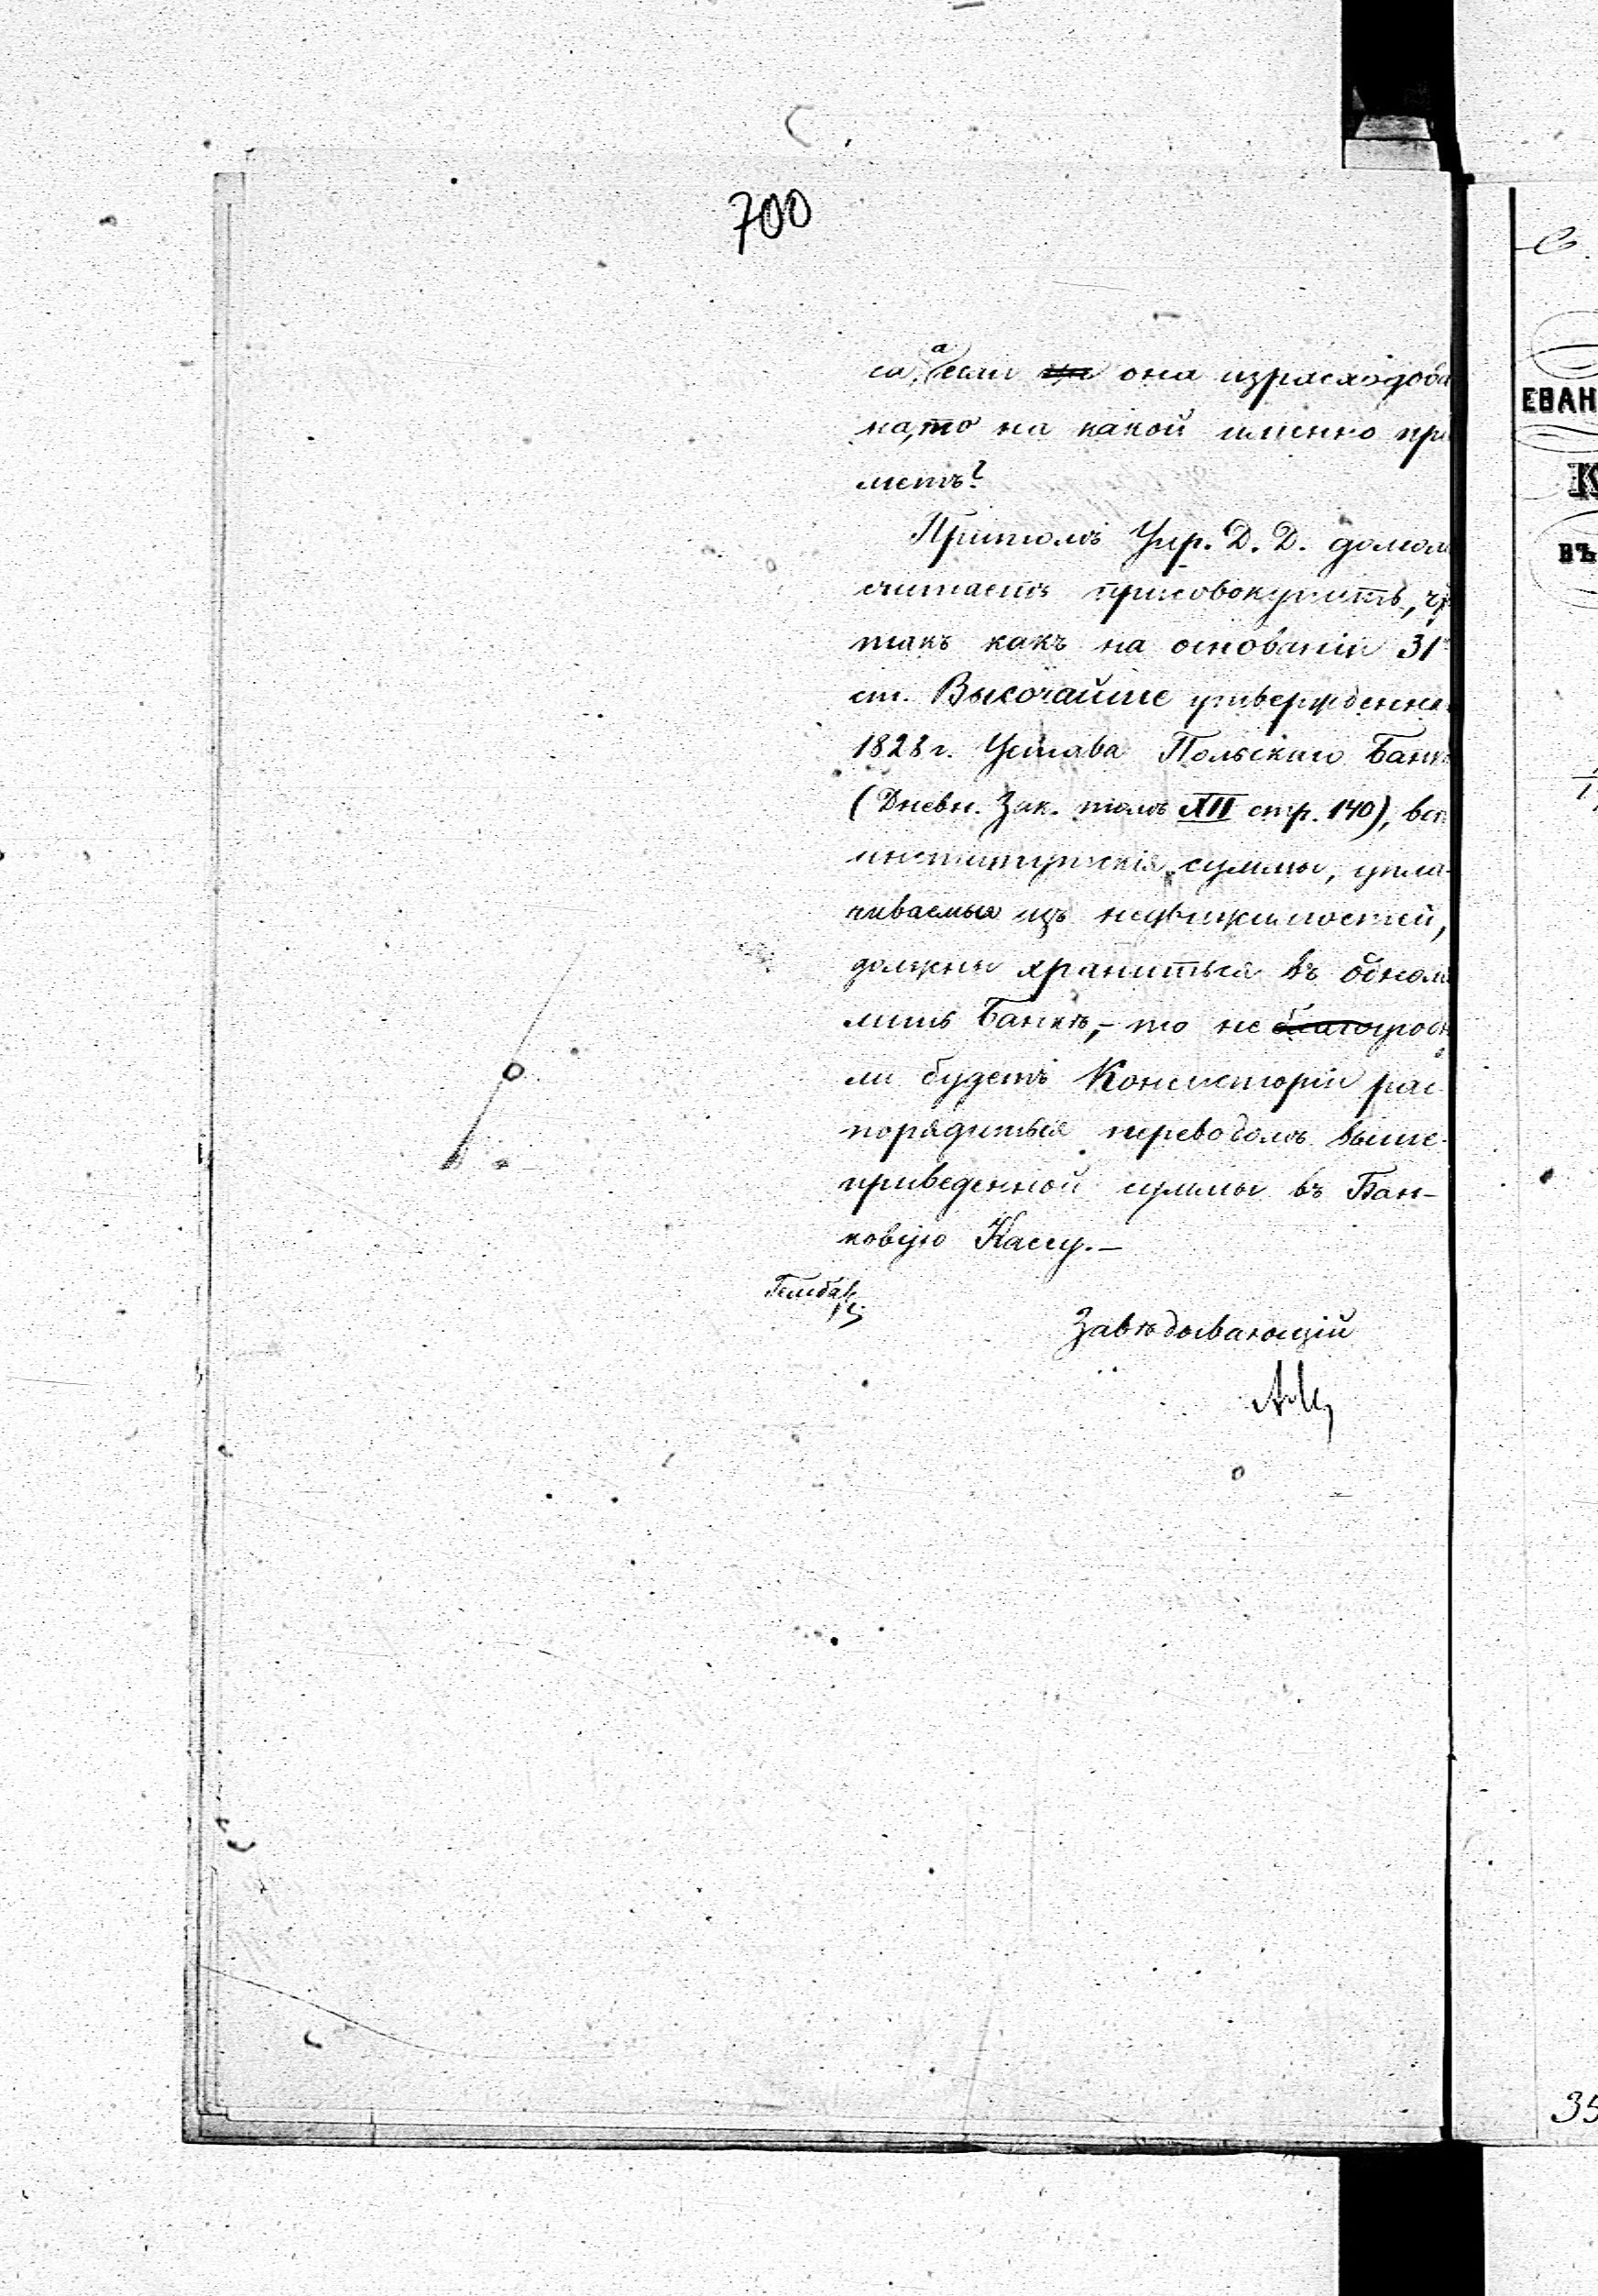 700
са, а если она израсходова
на, то на какой именно пре
метъ?
Притомъ Упр. Д. Д. долгом
считаетъ присовокупить, чт
такъ какъ на основаніи 31
ст. Высочайше утвержденна
1828 г. Устава Польскаго Банк
(Дневн. Зак. томъ XII стр. 140), вс
институтскія суммы, упла-
чиваемыя изъ недвижимостей,
должны храниться въ одном
лишь Банкѣ, – то не благоугодн
ли будетъ Консисторіи рас
порядиться переводомъ выше-
приведенной суммы въ Бан-
ковую Кассу. –
Завѣдывающій
ЕВАН
К
ВЪ
35